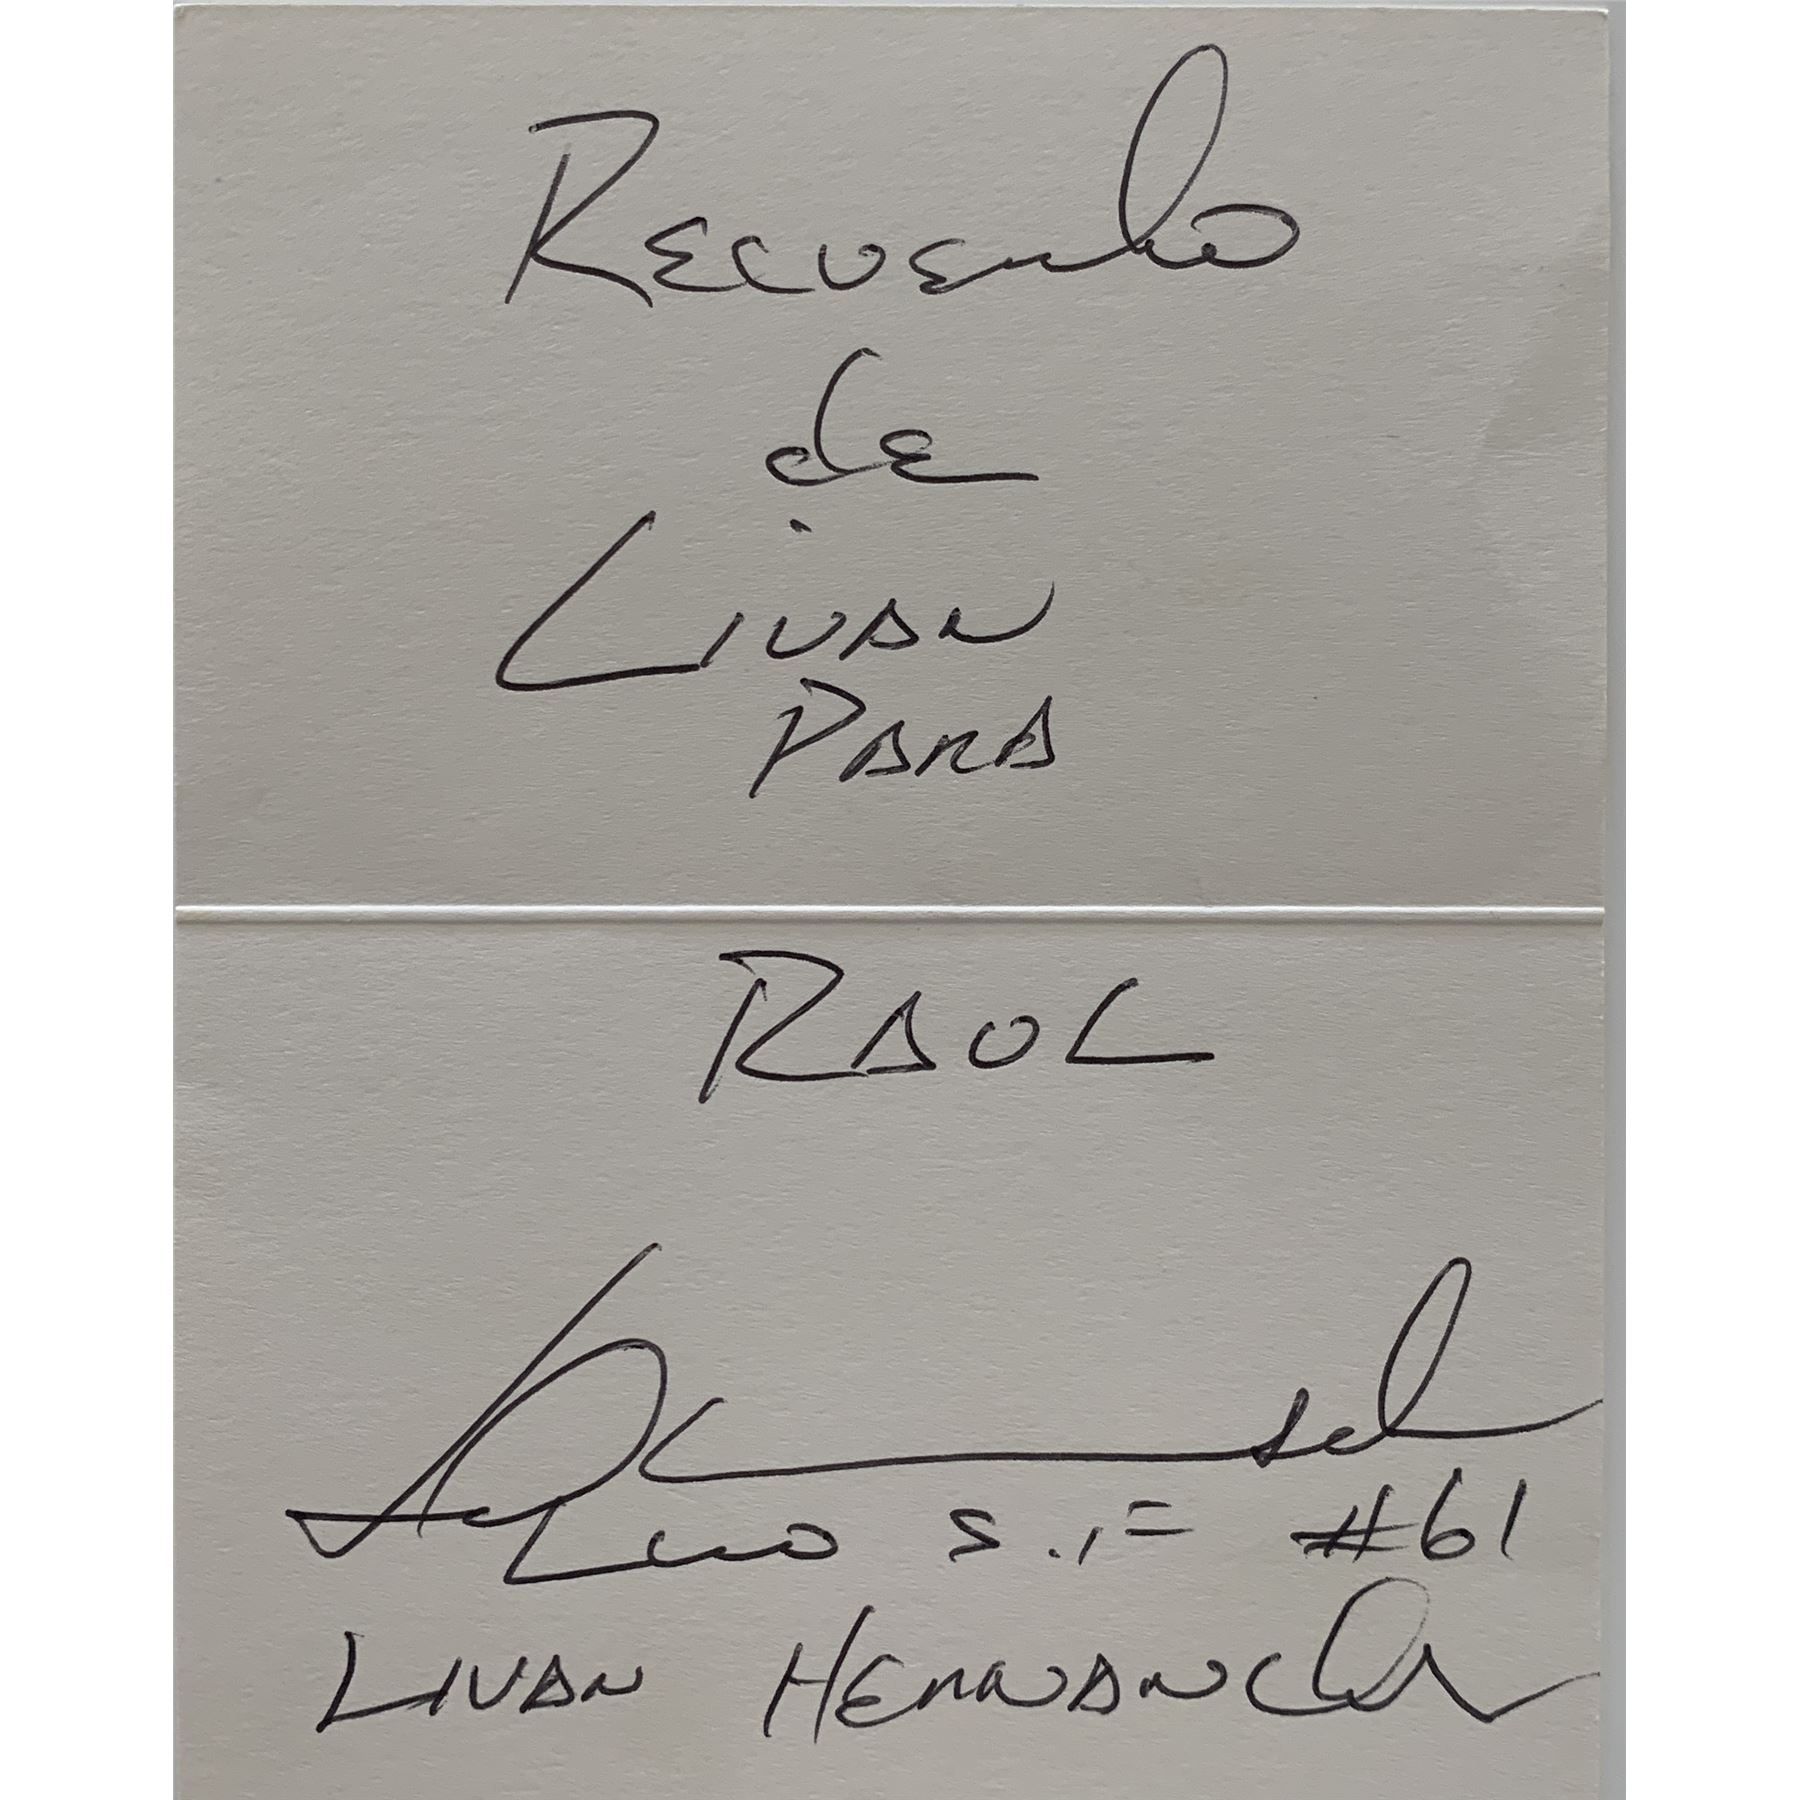 Recuerdo
de
LIVAN
PARA
RAUL
S.F #61
LIVAN HERNANdez